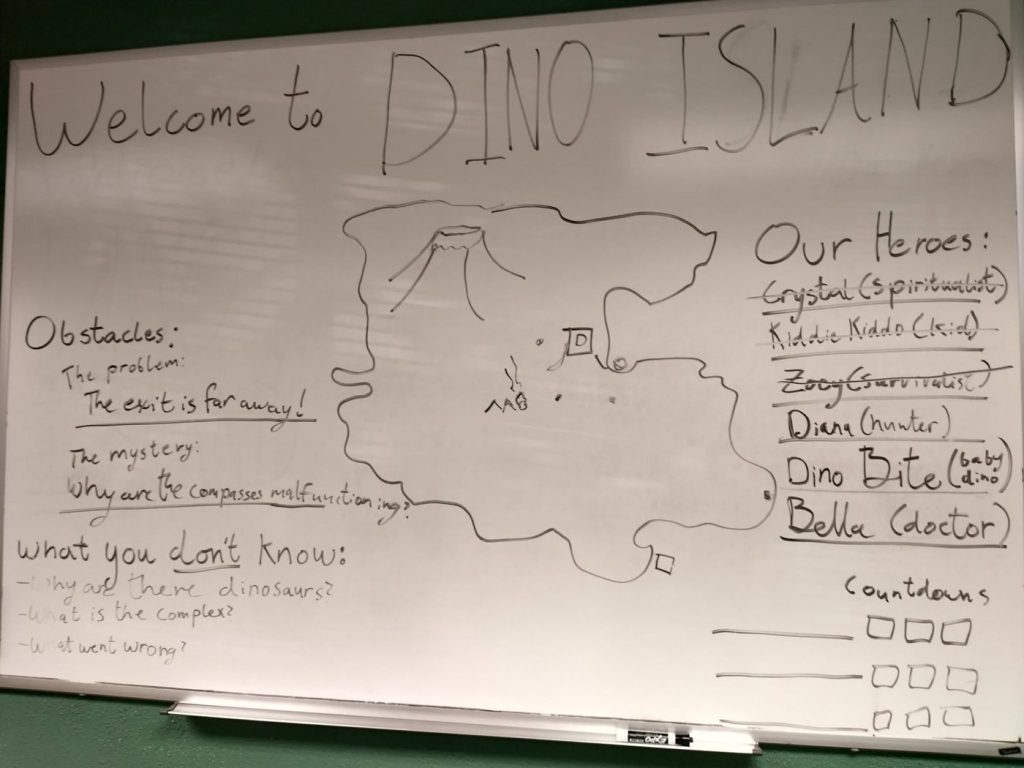 Welcome to DINO ISLAND
Our Heroes:
Crystal (spiritualist)
Kiddie Kiddo (kid)
Zoey (survivalist)
Diana (hunter)
Dino Bite (baby dino)
Bella (doctor)
Obstacles:
The problem:
The exit is far away!
The mystery:
Why are the compasses malfunctioning?
What you don't know:
-Why are there dinosaurs?
-What is the complex?
-What went wrong?
D
Countdowns